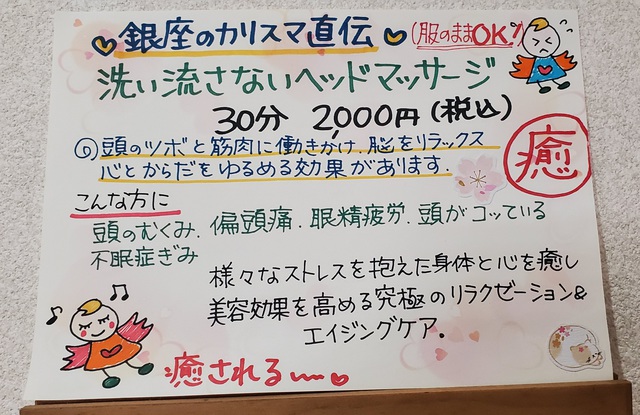 銀座のカリスマ直伝 (服のままOK!)
洗い流さないヘッドマッサージ
30分 2,000円(税込)
頭のツボと筋肉に働きかけ、脳をリラックス
心とからだをゆるめる効果があります.
癒
こんな方に
頭のむくみ、偏頭痛、眼精疲労、頭がコッている
不眠症ぎみ
様々なストレスを抱えた身体と心を癒し
美容効果を高める究極のリラクゼーション&
エイジングケア.
癒される〜